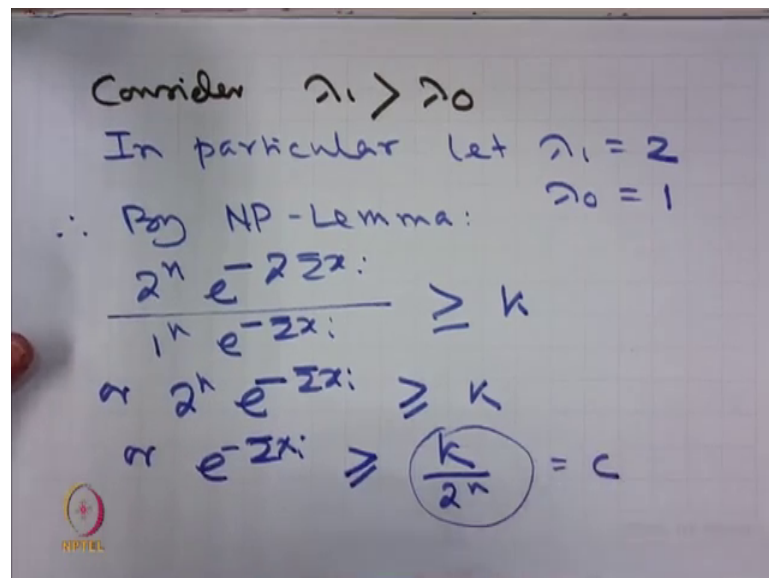 Consider λ₁ > λ₀
In particular let λ₁ = 2
λ₀ = 1
∴ By NP-Lemma:
2ⁿ e^{-2Σxi}
/ 1ⁿ e^{-Σxi} ≥ k
or 2ⁿ e^{-Σxi} ≥ k
or e^{-Σxi} ≥ k/2ⁿ = c
NPTEL